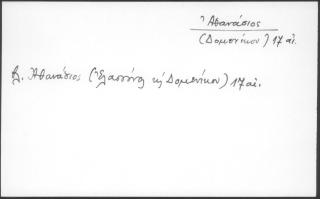 Ἀθανάσιος
(Δομενίκου) 17 αἰ.
βλ. Ἀθανάσιος (Ἐλασσόνος κ̀ Δομενίκου) 17 αἰ.